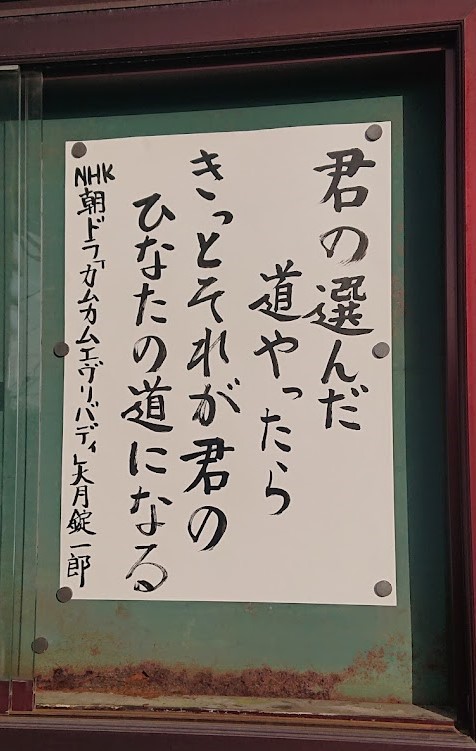 君の選んだ
道やったら
きっとそれが君の
ひなたの道になる
NHK朝ドラ「カムカムエヴリバディ」大月錠一郎